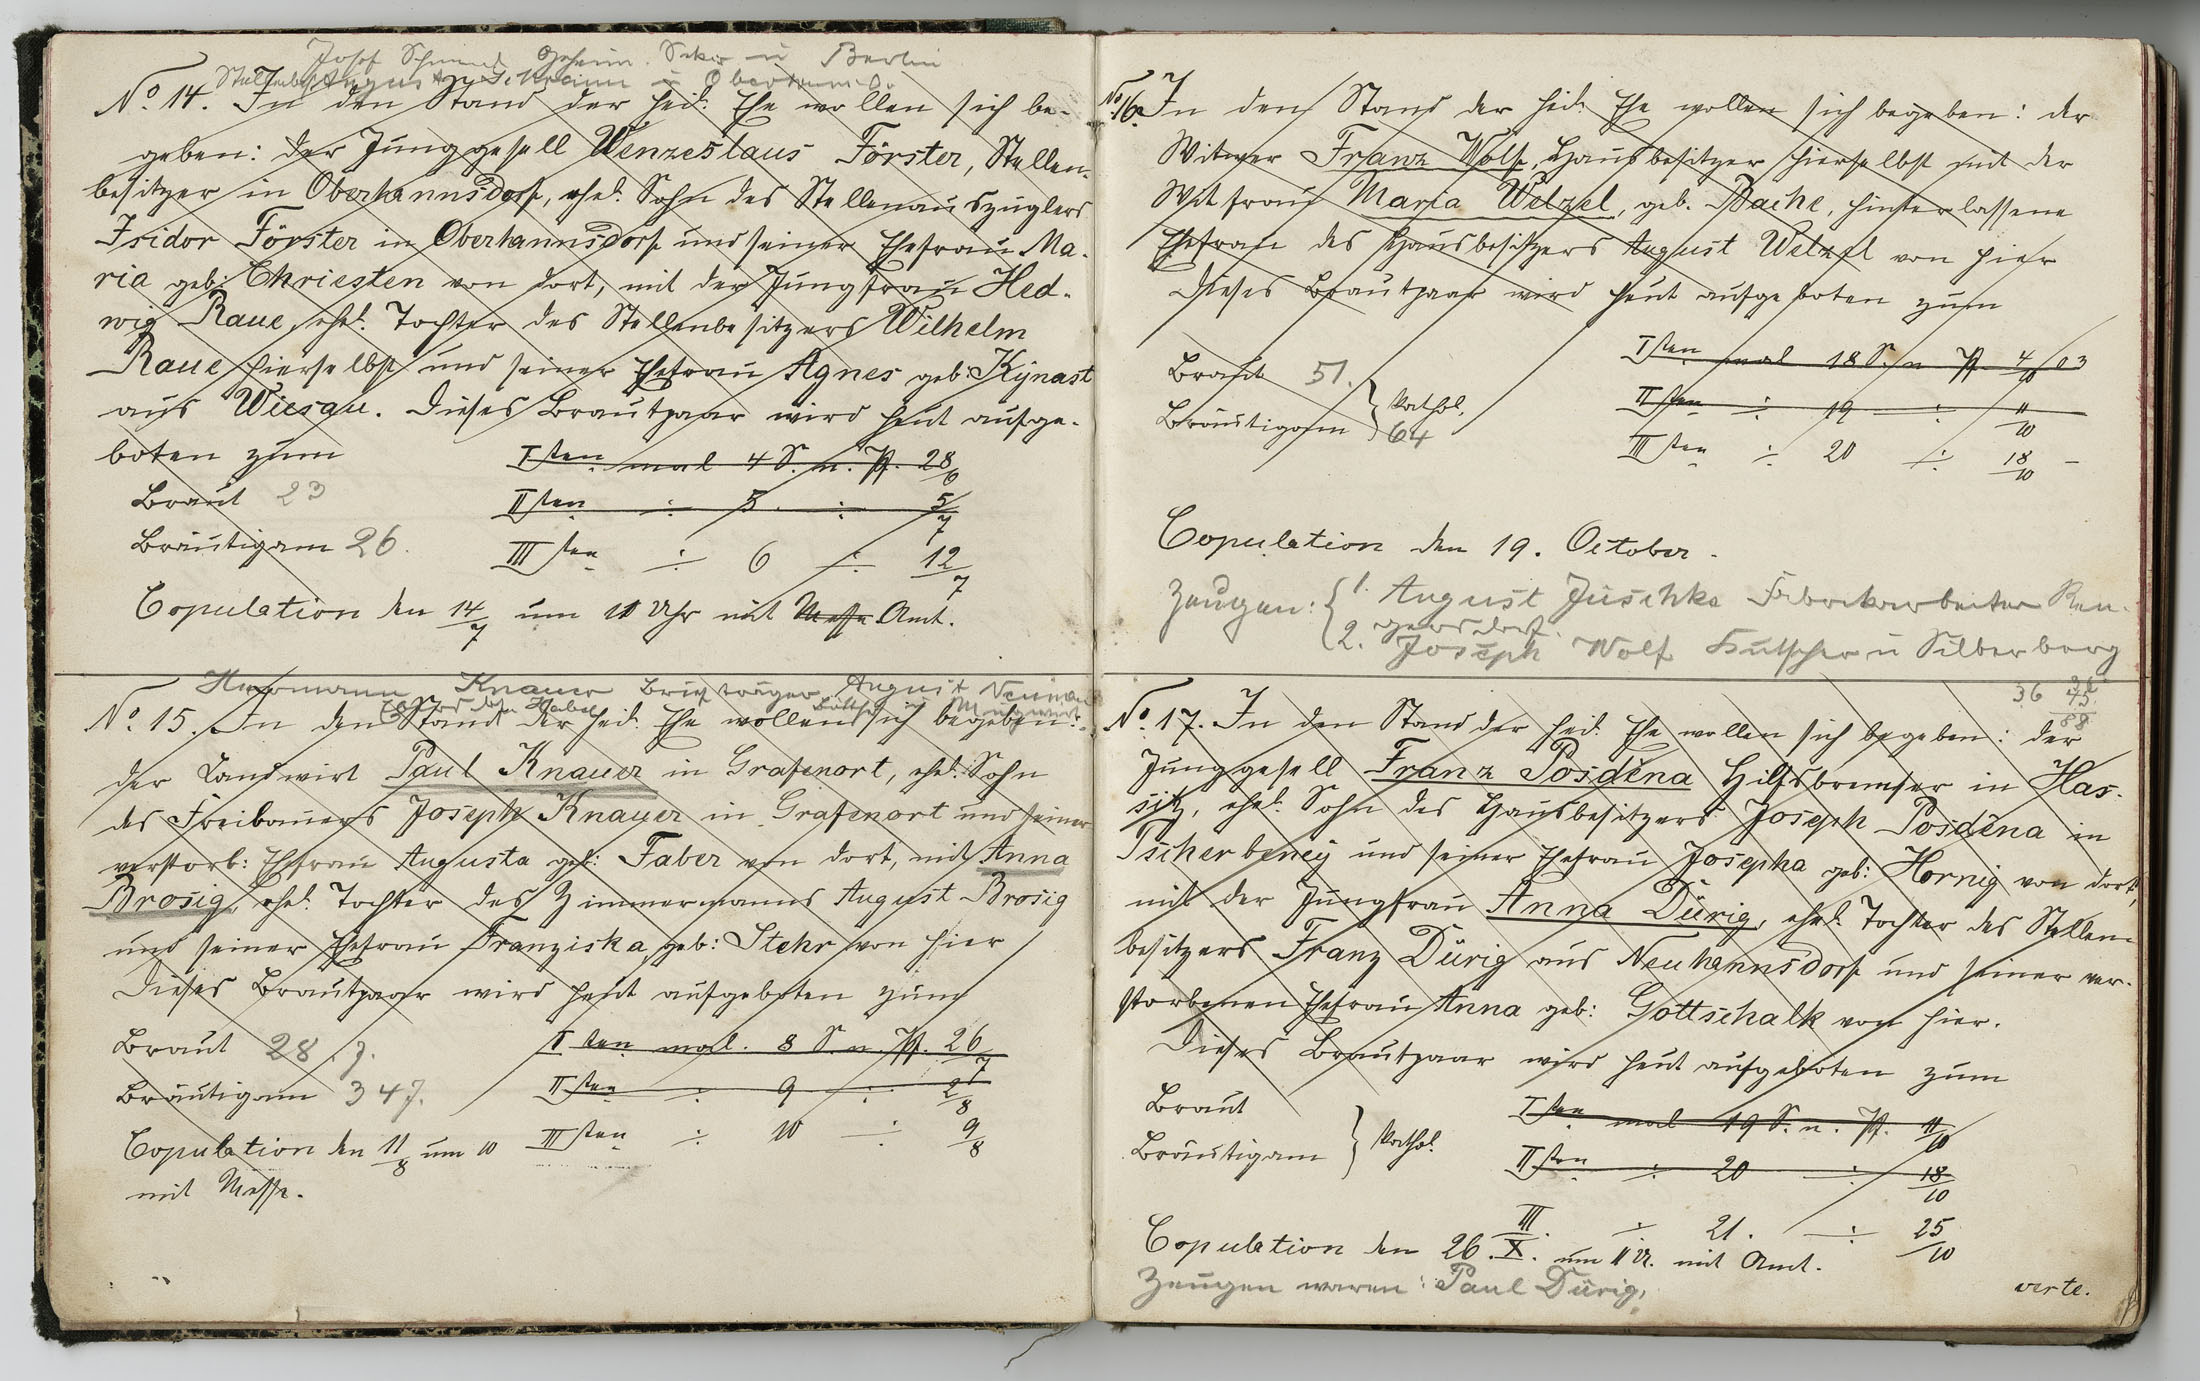 Josef Schmid Geheim. Sekr. in Berlin
Stellenbes. August in
No 14. In den Stand der heil. Ehe wollen sich be-
geben: der Junggesell Wenzeslaus Förster, Stellen-
besitzer in Oberhannsdorf, ehel. Sohn des Stellenauszüglers
Isidor Förster in Oberhannsdorf und seiner Ehefrau Ma-
ria geb: Chriesten von dort, mit der Jungfrau Hed-
wig Raue, ehel. Tochter des Stellenbesitzers Wilhelm
Raue hierselbst und seiner Ehefrau Agnes geb: Kynast
aus Wiesau. Dieses Brautpaar wird heut aufge-
boten zum
Isten mal 4 S. n. Pf. 28/6
Braut 23
IIten ÷ 5 ÷ 5/7
Bräutigam 26.
IIIten ÷ 6 ÷ 12/7
Copulation den 14/7 um 10 Uhr mit Messe Amt.
Hermann Knauer Briefträger August
No. 15. In den Stand der heil. Ehe wollen sich begeben:
der Landwirt Paul Knauer in Grafenort, ehel. Sohn
des Freibauers Joseph Knauer in Grafenort und seiner
verstorb: Ehefrau Augusta geb: Faber von dort, mit Anna
Brosig, ehel. Tochter des Zimmermanns August Brosig
und seiner Ehefrau Franziska, geb: Stehr von hier
Dieses Brautpaar wird heut aufgeboten zum
Braut 28 J.
Isten mal. 8 S. n. Pf. 26/7
Bräutigam 34 J.
IIten ÷ 9 ÷ 2/8
Copulation den 11/8 um 10
IIIten ÷ 10 ÷ 9/8
mit Messe.
No 16. In den Stand der heil. Ehe wollen sich begeben: der
Witwer Franz Wolf, Hausbesitzer hierselbst mit der
Witfrau Maria Welzel, geb. Pache, hinterlassene
Ehefrau des Hausbesitzers August Welzel von hier
Dieses Brautpaar wird heut aufgeboten zum
Isten mal 18 S. n Pf. 4/10 03
Braut 51.
IIten ÷ 19 ÷ 11/10
Bräutigam 64 } kathol.
IIIten ÷ 20 ÷ 18/10
Copulation den 19. October.
Zeugen: { 1. August Juschke Fabrikarbeiter Ren-
gersdorf.
2. Joseph Wolf Kutscher in Silberberg
36 45
88
No. 17. In den Stand der heil. Ehe wollen sich begeben: der
Junggesell Franz Posdĕna Hilfsbremser in Has-
sitz, ehel. Sohn des Hausbesitzers Joseph Posdĕna in
Tscherbeney und seiner Ehefrau Josepha geb: Hornig von dort,
mit der Jungfrau Anna Dürig, ehel. Tochter des Stellen-
besitzers Franz Dürig aus Neuhannsdorf und seiner ver-
storbenen Ehefrau Anna geb: Gottschalk von hier.
Dieses Brautpaar wird heut aufgeboten zum
Braut
Isten mal 19 S. n. Pf. 11/10
Bräutigam } kathol.
IIten ÷ 20 ÷ 18/10
III. ÷ 21. ÷ 25/10
Copulation den 26. X. um 11 U. mit Amt.
Zeugen waren: Paul Dürig,
verte.